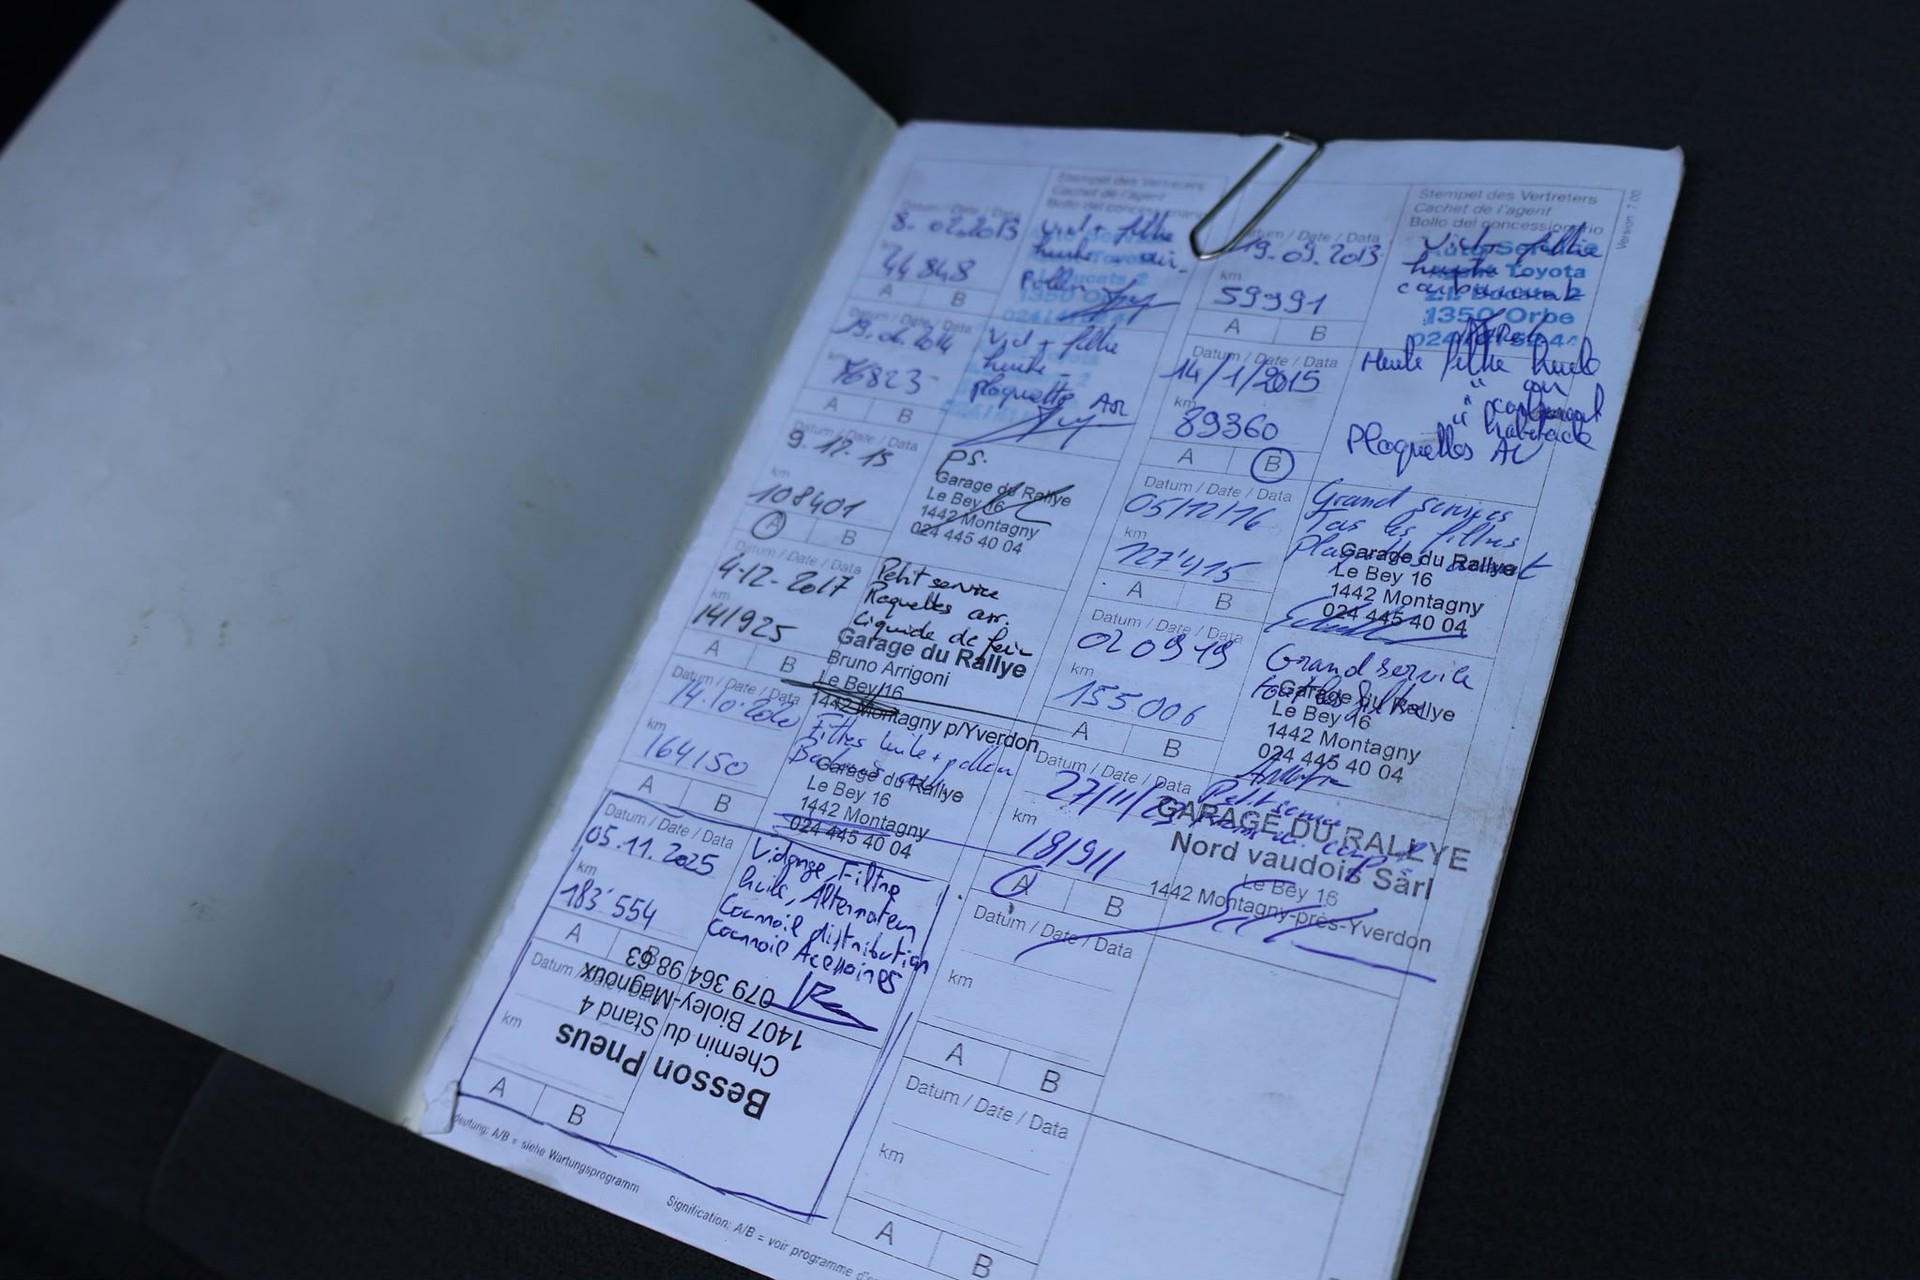 Stempel des Vertreters
Cachet de l'agent
Bollo del concessionario
Datum / Date / Data
8. 02.2013
Vid + filtre
huile
Pollen
km
44 848
A B
1350 Orbe
Stempel des Vertreters
Cachet de l'agent
Bollo del concessionario
Version 7.00
Datum / Date / Data
19.09.2013
km
59391
A B
Toyota
1350 Orbe
Datum / Date / Data
km
76823
A B
Vid + filtre
huile -
plaquette AR
Datum / Date / Data
14/1/2015
km
89360
A B
Huile filtre huile
Plaquettes AV
Datum / Date / Data
9.12.15
km
108401
A B
ps.
Garage du Rallye
Le Bey 16
1442 Montagny
024 445 40 04
Datum / Date / Data
05/12/16
km
127'415
A B
Grand services
Tos les filtres
Garage du Rallye
Le Bey 16
1442 Montagny
024 445 40 04
Datum / Date / Data
4.12.2017
km
141925
A B
Petit service
Plaquettes arr.
Liquide de frein
Garage du Rallye
Bruno Arrigoni
Le Bey 16
1442 Montagny p/Yverdon
Datum / Date / Data
02 09 19
km
155006
A B
Grand service
Garage du Rallye
Le Bey 16
1442 Montagny
024 445 40 04
Datum / Date / Data
14.10.2020
km
164150
A B
Filtres huile + pollen
Garage du Rallye
Le Bey 16
1442 Montagny
024 445 40 04
Datum / Date / Data
27/11/23
km
181911
A B
Petit service
GARAGE DU RALLYE
Nord vaudois Sàrl
Le Bey 16
1442 Montagny-près-Yverdon
Datum / Date / Data
05.11.2025
km
183'554
A B
Vidange, Filtre
huile, Alternateur
Courroie distribution
Courroie Acessoires
Datum / Date / Data
km
A B
Datum / Date / Data
km
A B
Besson Pneus
Chemin du Stand 4
1407 Bioley-Magnoux
079 364 98 63
Datum / Date / Data
km
A B
deutung: A/B = siehe Wartungsprogramm
Signification: A/B = voir programme